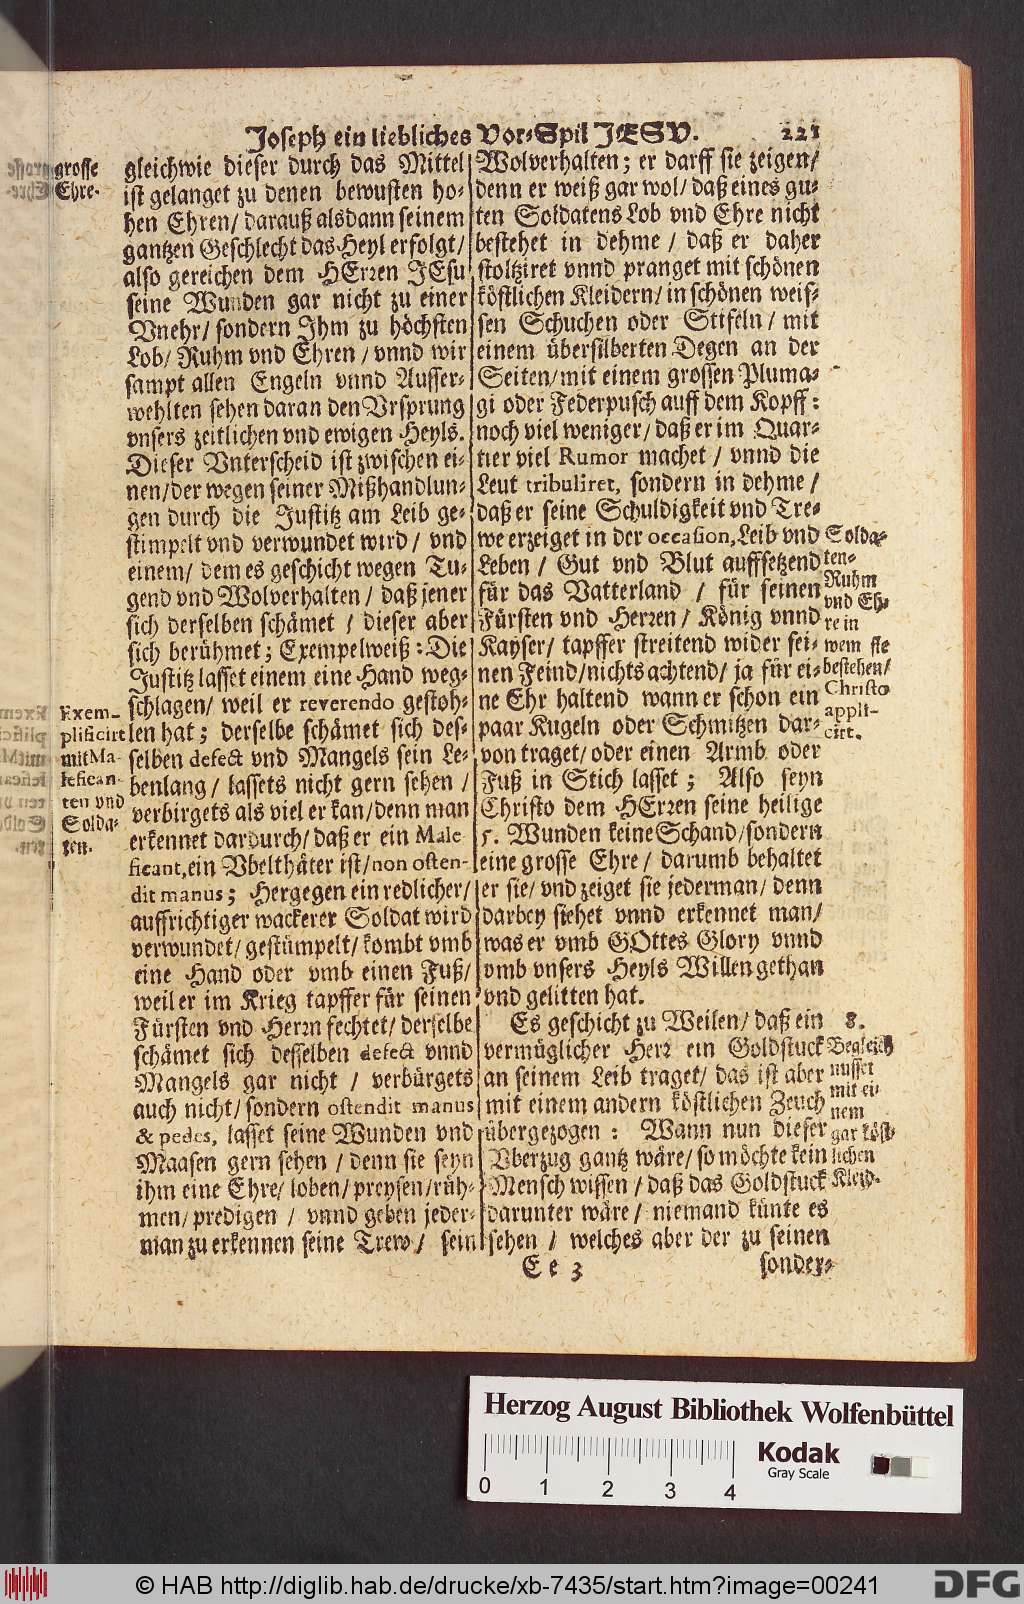 Joseph ein liebliches Vor-Spil JESV. 221
grosse
Ehre.
gleichwie dieser durch das Mittel
ist gelanget zu denen bewusten ho-
hen Ehren/ darauß alsdann seinem
gantzen Geschlecht das Heyl erfolgt/
also gereichen dem HErren JEsu
seine Wunden gar nicht zu einer
Vnehr/ sondern Ihm zu höchsten
Lob/ Ruhm vnd Ehren / vnnd wir
sampt allen Engeln vnnd Ausser-
wehlten sehen daran den Vrsprung
vnsers zeitlichen vnd ewigen Heyls.
Dieser Vnterscheid ist zwischen ei-
nen/ der wegen seiner Mißhandlun-
gen durch die Justitz am Leib ge-
stimpelt vnd verwundet wird/ vnd
einem/ dem es geschicht wegen Tu-
gend vnd Wolverhalten / daß jener
sich derselben schämet / dieser aber
sich berühmet; Exempelweiß: Die
Justitz lasset einem eine Hand weg-
schlagen/ weil er reverendo gestoh-
len hat; derselbe schämet sich des-
selben defect vnd Mangels sein Le-
benlang / lassets nicht gern sehen /
verbirgets als viel er kan/ denn man
erkennet dardurch/ daß er ein Male-
ficant, ein Vbelthäter ist/ non osten-
dit manus; Hergegen ein redlicher/
auffrichtiger wackerer Soldat wird
verwundet/ gestümpelt/ kombt vmb
eine Hand oder vmb einen Fuß/
weil er im Krieg tapffer für seinen
Fürsten vnd Herrn fechtet/ derselbe
schämet sich desselben defect vnnd
Mangels gar nicht / verbürgets
auch nicht/ sondern ostendit manus
& pedes, lasset seine Wunden vnd
Maasen gern sehen / denn sie seyn
ihm eine Ehre/ loben/ preysen/ rüh-
men/ predigen / vnnd geben jeder-
man zu erkennen seine Trew/ sein
Exem-
plificirt
mit Ma-
lefican-
ten vnd
Solda-
ten.
Wolverhalten; er darff sie zeigen/
denn er weiß gar wol/ daß eines gu-
ten Soldatens Lob vnd Ehre nicht
bestehet in dehme / daß er daher
stoltziret vnnd pranget mit schönen
köstlichen Kleidern/ in schönen weis-
sen Schuchen oder Stifeln / mit
einem übersilberten Degen an der
Seiten/ mit einem grossen Pluma-
gi oder Federpusch auff dem Kopff:
noch viel weniger/ daß er im Quar-
tier viel Rumor machet / vnnd die
Leut tribuliret, sondern in dehme /
daß er seine Schuldigkeit vnd Tre-
we erzeiget in der occasion, Leib vnd
Leben / Gut vnd Blut auffsetzend
für das Vatterland / für seinen
Fürsten vnd Herren / König vnnd
Kayser/ tapffer streitend wider sei-
nen Feind/ nichts achtend/ ja für ei-
ne Ehr haltend wann er schon ein
paar Kugeln oder Schmitzen dar-
von traget/ oder einen Armb oder
Fuß in Stich lasset; Also seyn
Christo dem HErren seine heilige
5. Wunden keine Schand/ sondern
eine grosse Ehre / darumb behaltet
er sie/ vnd zeiget sie jederman/ denn
darbey siehet vnnd erkennet man/
was er vmb GOttes Glory vnnd
vmb vnsers Heyls Willen gethan
vnd gelitten hat.
Es geschicht zu Weilen/ daß ein
vermüglicher Herr ein Goldstuck
an seinem Leib traget/ das ist aber
mit einem andern köstlichen Zeuch
übergezogen : Wann nun dieser
Vberzug gantz wäre/ so möchte kein
Mensch wissen / daß das Goldstuck
darunter wäre / niemand künte es
sehen / welches aber der zu seinen
Solda-
ten-
Ruhm
vnd Eh-
re in
wem sie
bestehen/
Christo
appli-
cirt.
8.
Begleich
nusset
mit ei-
nem
gar köst-
lichen
Kleid.
E e 3 sonder-
Herzog August Bibliothek Wolfenbüttel
0 1 2 3 4
Kodak
Gray Scale
© HAB http://diglib.hab.de/drucke/xb-7435/start.htm?image=00241
DFG